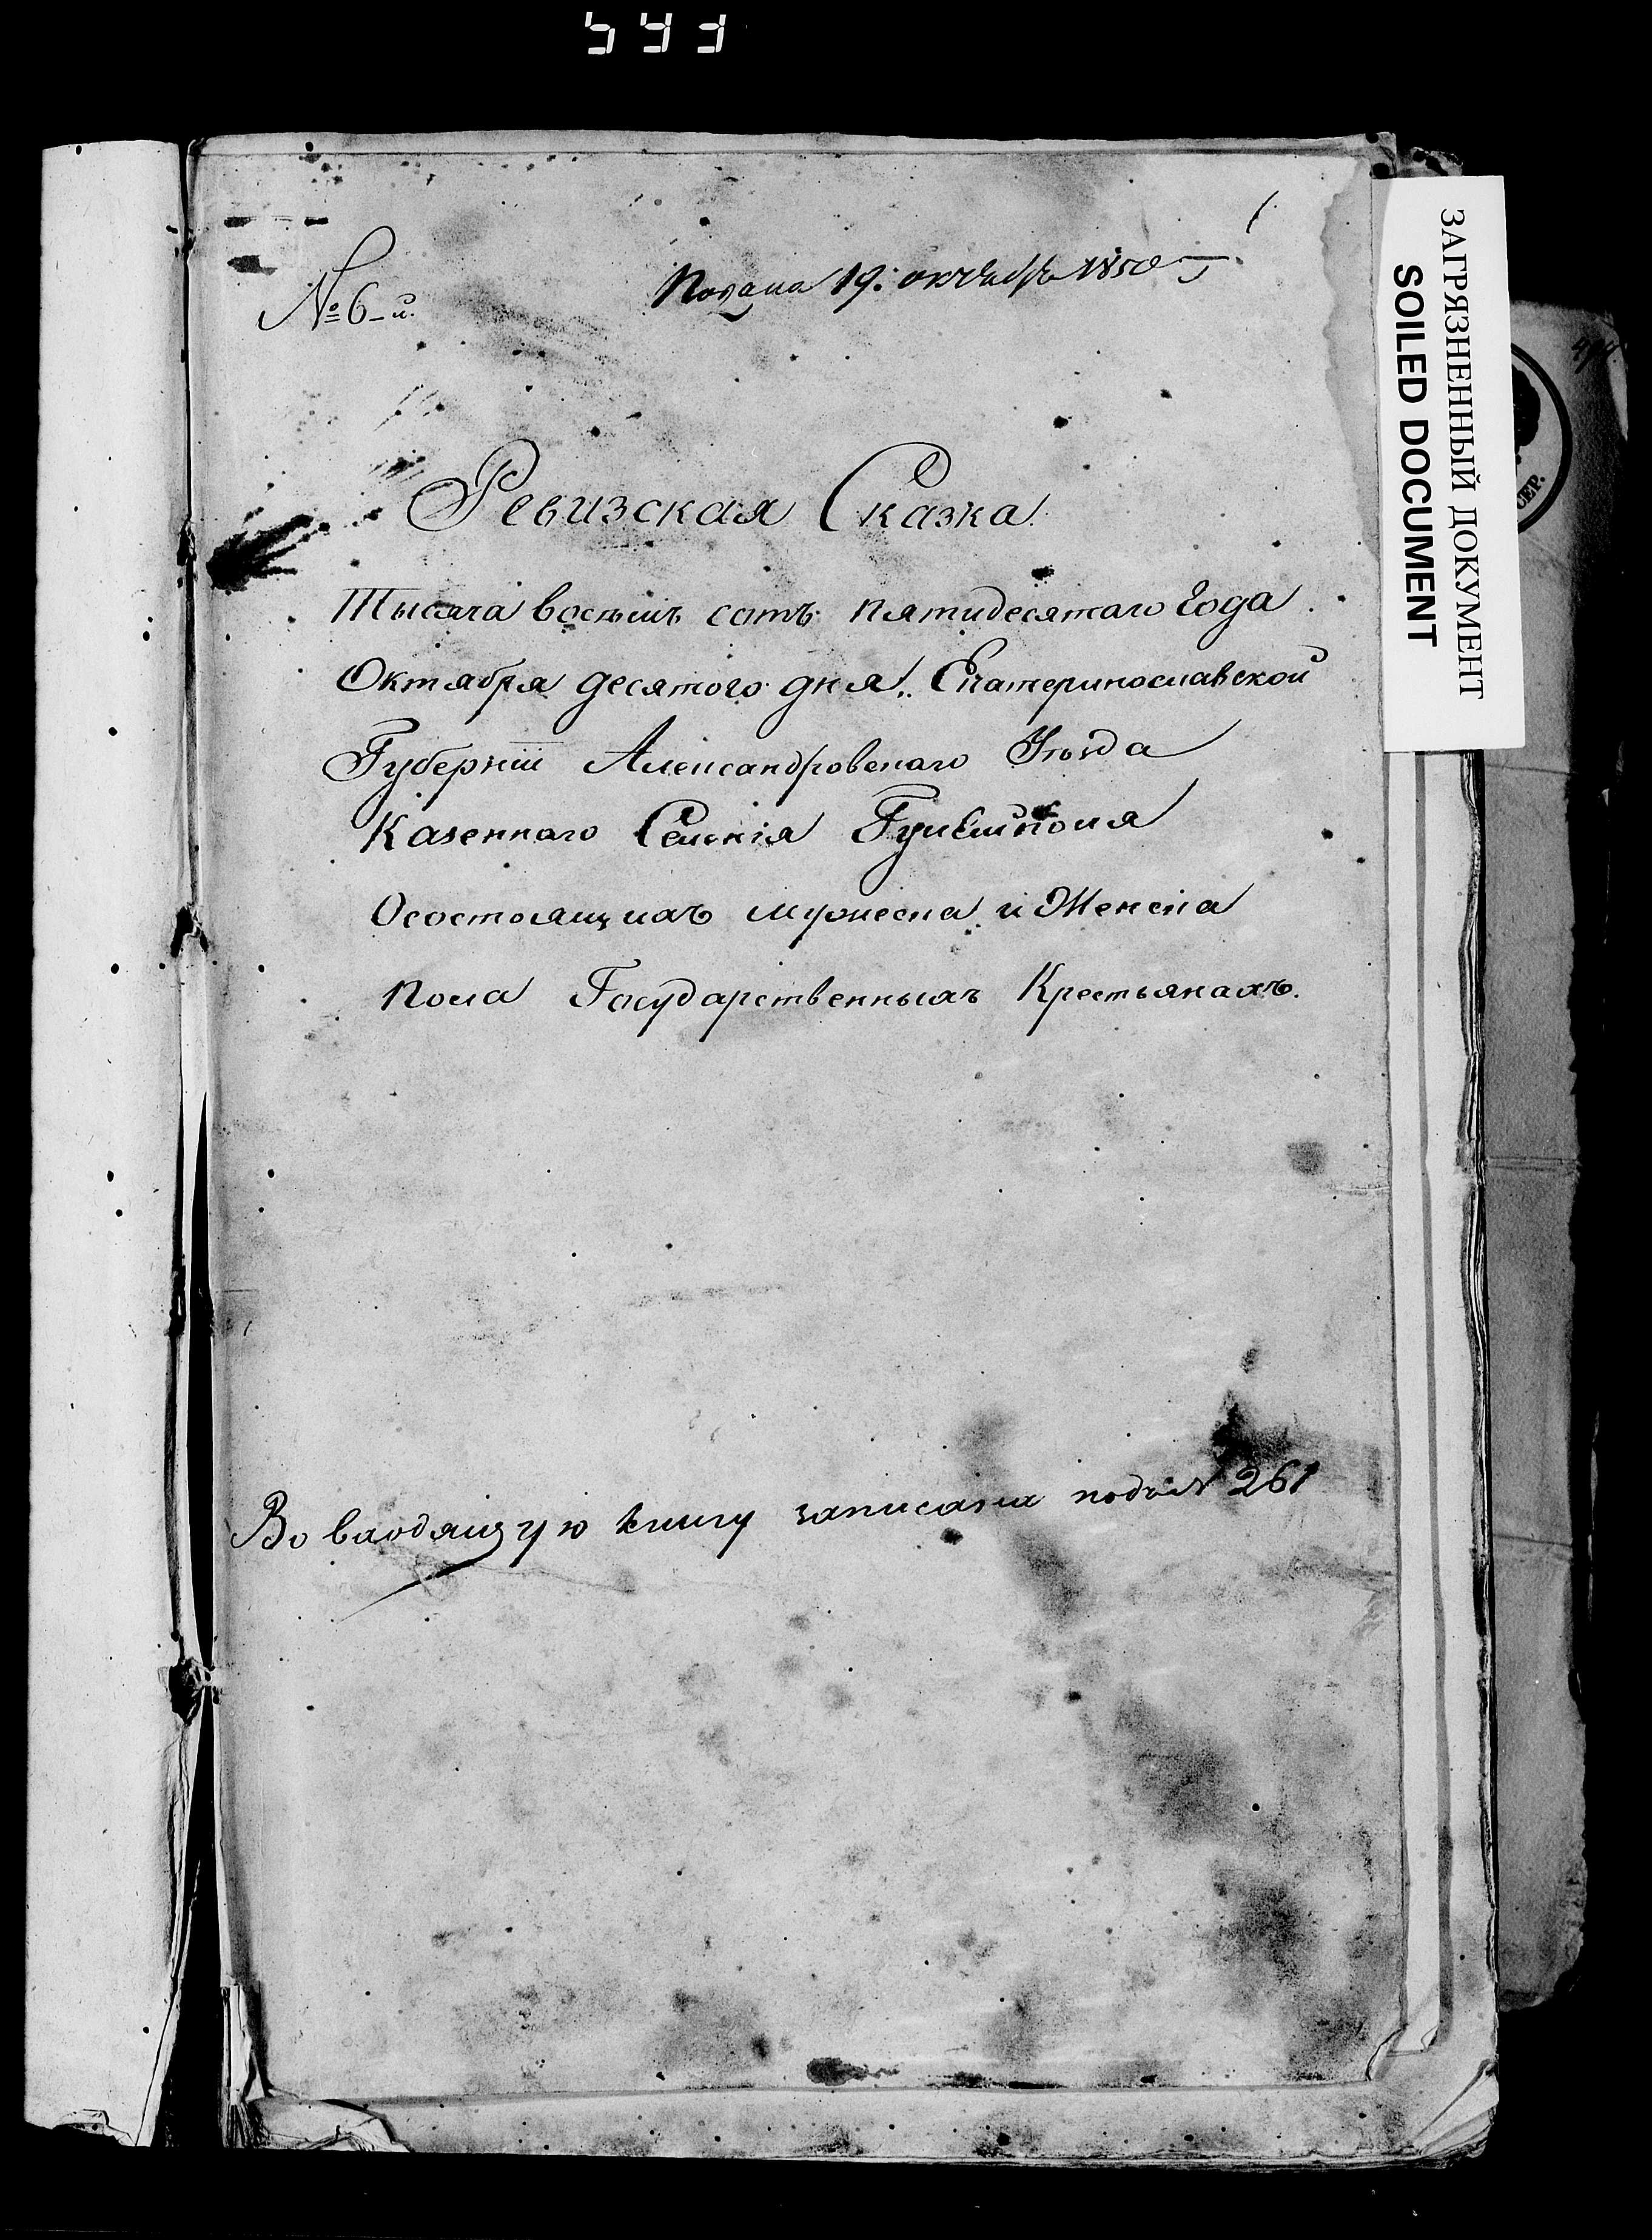 № 6-й.
Подана 19. октября 1850 г.
1
Ревизская Сказка.
Тысяча восемь сотъ пятидесятаго Года
Октября десятого дня. Екатеринославской
Губерніи Александровскаго Уѣзда
Казеннаго Селенія Гуляйполя
О состоящихъ мужеска и Женска
пола Государственныхъ Крестьянахъ.
Во входящую книгу записана подъ № 261
ЗАГРЯЗНЕННЫЙ ДОКУМЕНТ
SOILED DOCUMENT
СЕР.